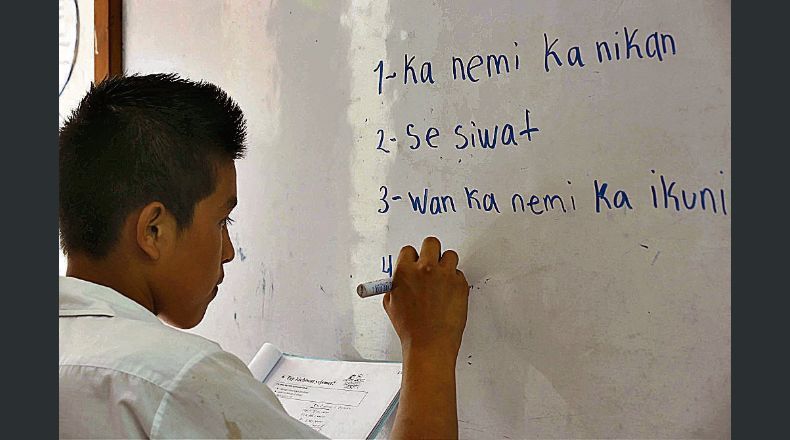 1- Ka nemi ka nikan
2- Se siwat
3- Wan ka nemi ka ikuni
4